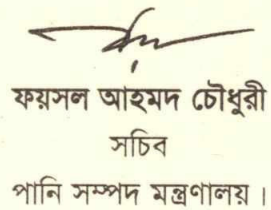 ফয়সল আহমদ চৌধুরী
সচিব
পানি সম্পদ মন্ত্রণালয়।